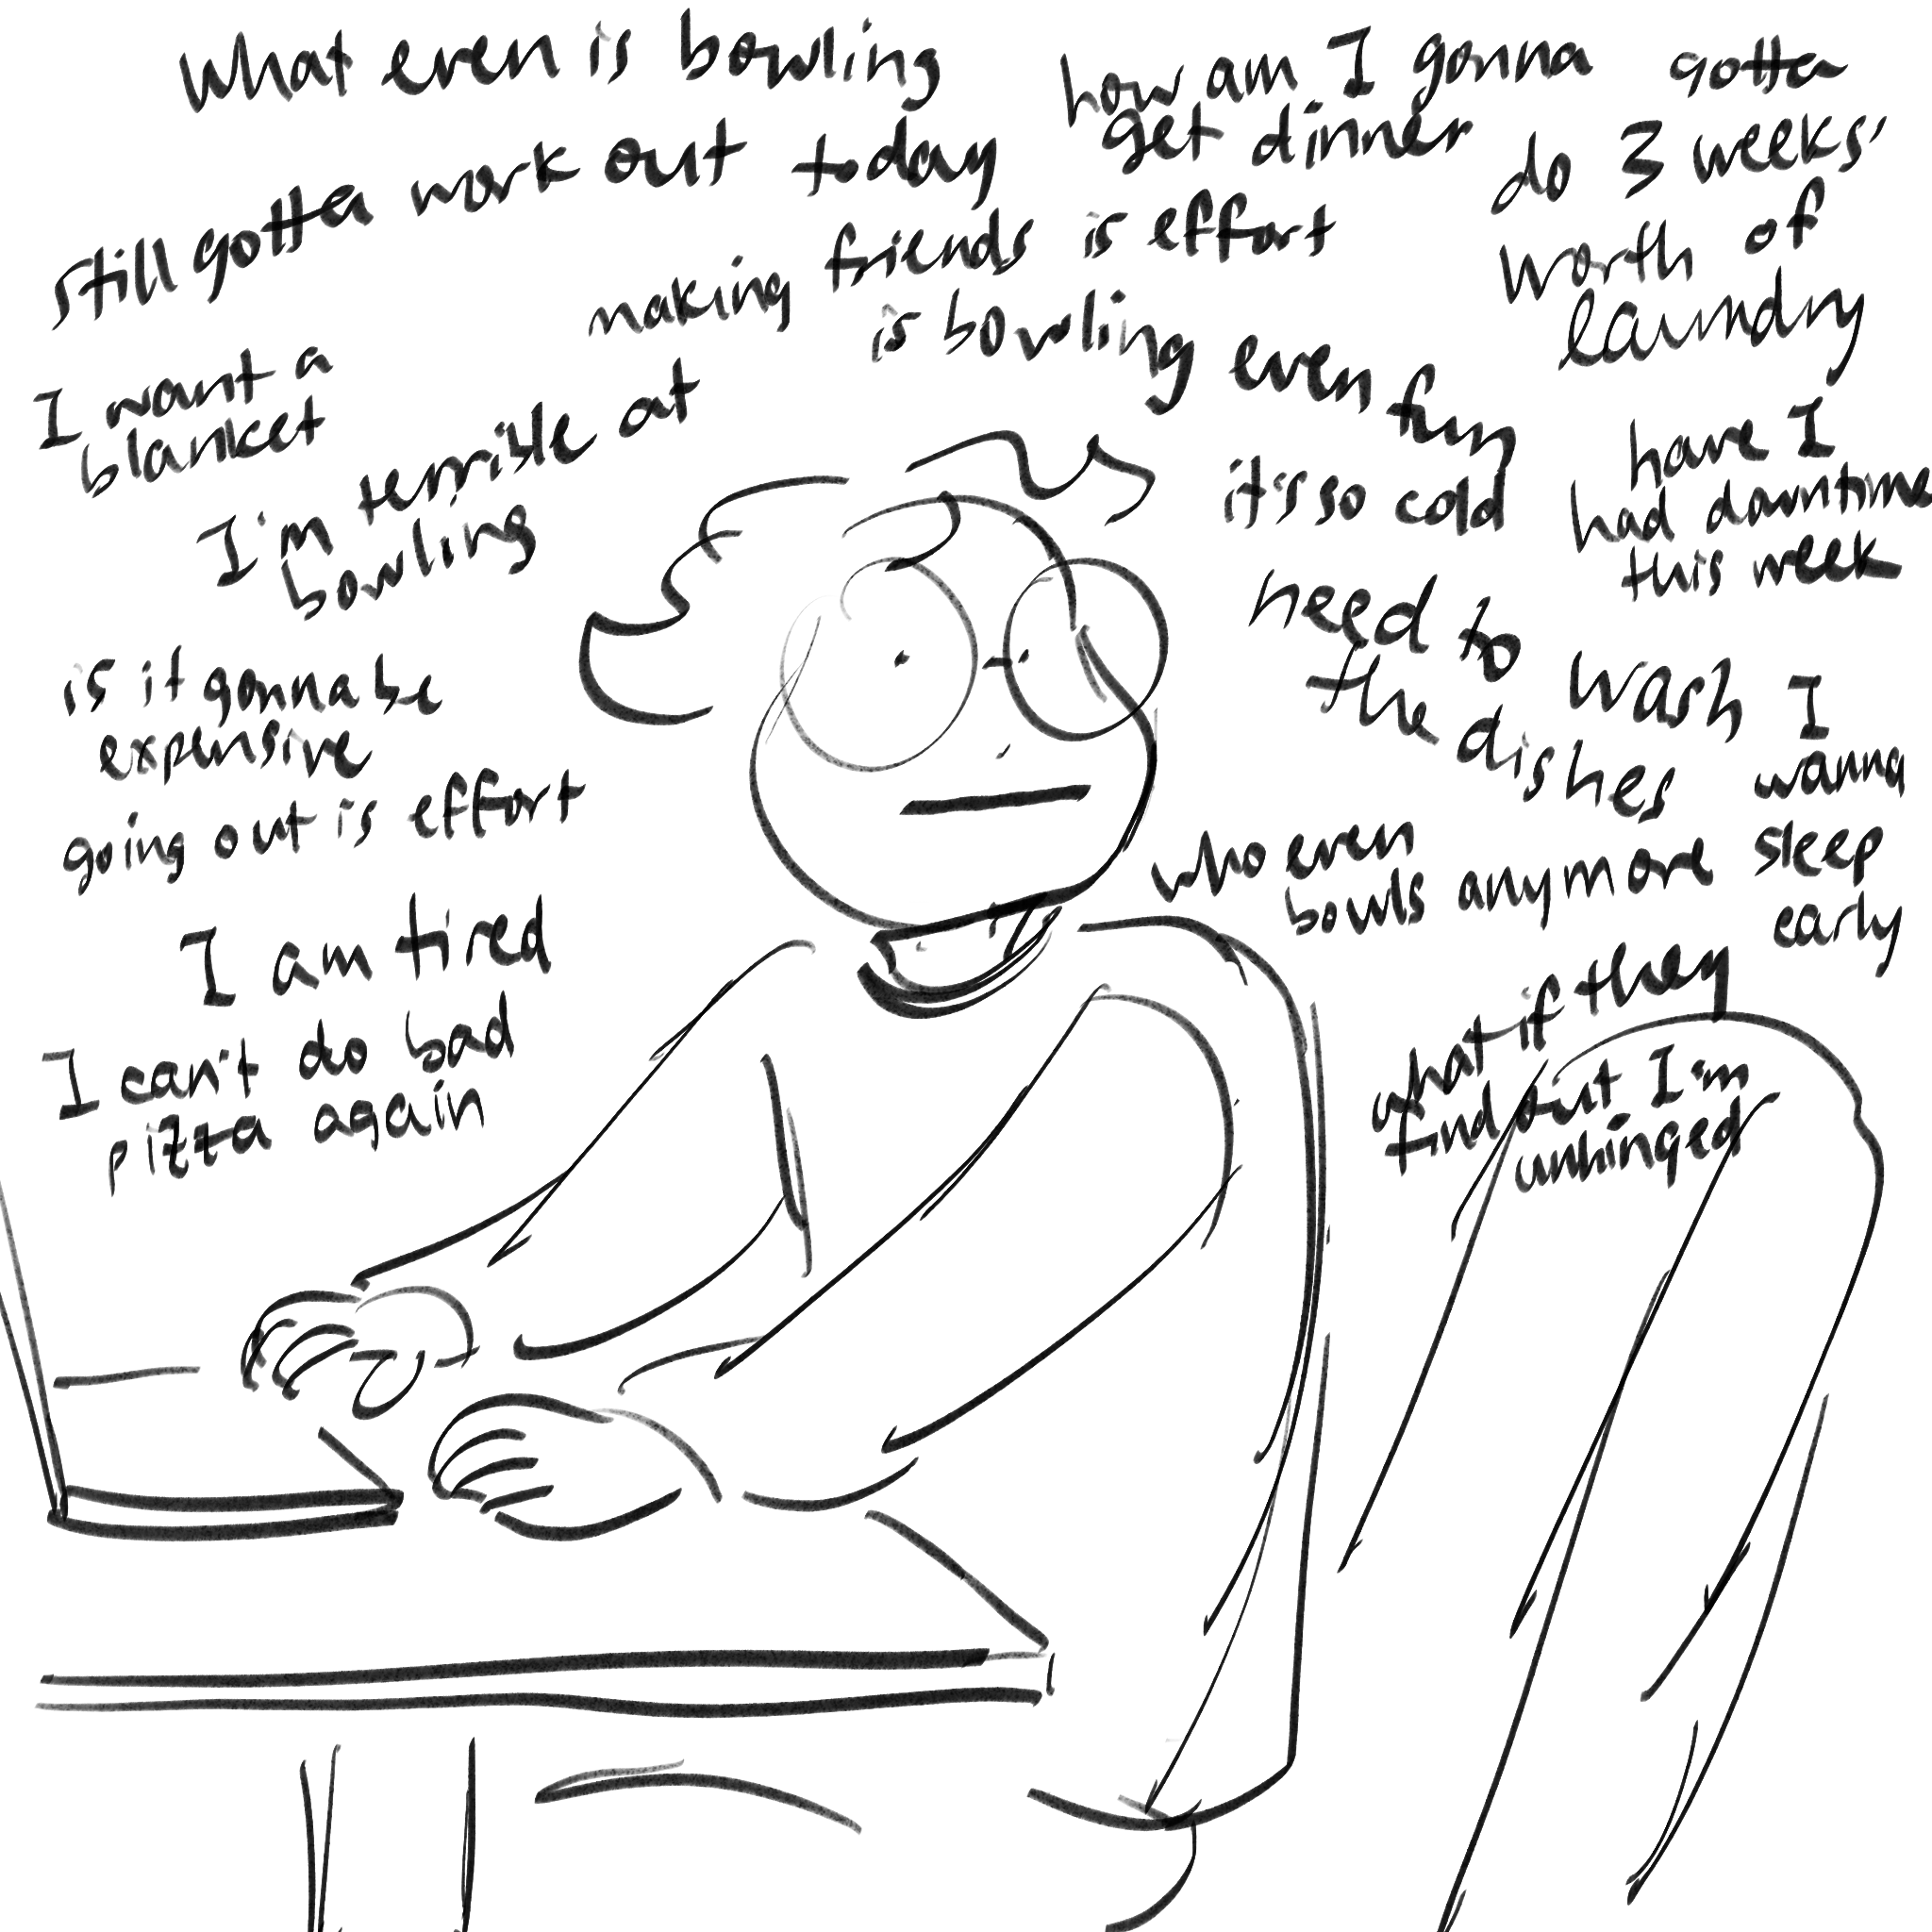 what even is bowling
how am I gonna
get dinner
gotta
do 3 weeks'
worth of
laundry
still gotta work out today
making friends is effort
is bowling even fun
I want a
blanket
I'm terrible at
bowling
it's so cold
have I
had downtime
this week
need to wash
the dishes
is it gonna be
expensive
I
wanna
sleep
early
going out is effort
who even
bowls anymore
I am tired
what if they
find out I'm
unhinged
I can't do bad
pizza again